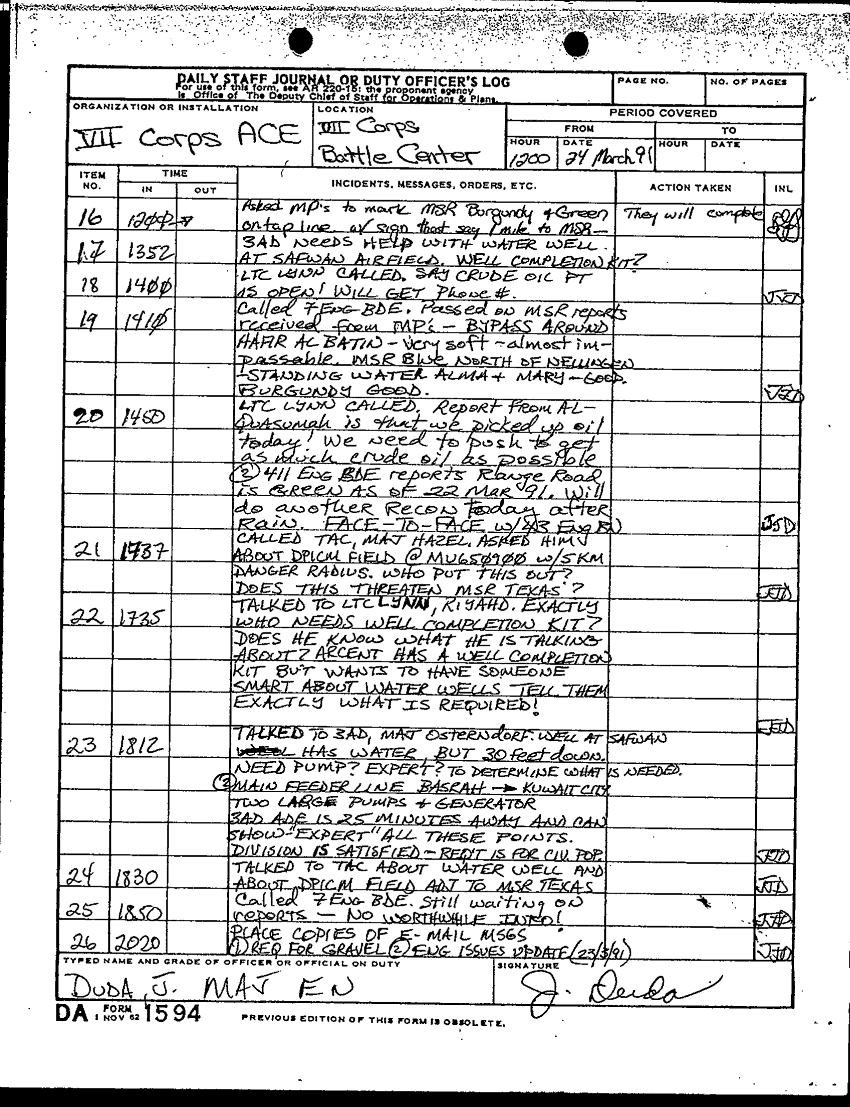 DAILY STAFF JOURNAL OR DUTY OFFICER'S LOG
For use of this form, see AR 220-15; the proponent agency
is Office of The Deputy Chief of Staff for Operations & Plans.
PAGE NO.
NO. OF PAGES
ORGANIZATION OR INSTALLATION
VII Corps ACE
LOCATION
VII Corps
Battle Center
PERIOD COVERED
FROM
TO
HOUR
DATE
HOUR
DATE
1200
24 March 91
ITEM NO.
TIME
IN
OUT
INCIDENTS, MESSAGES, ORDERS, ETC.
ACTION TAKEN
INL
16 1200 Asked MP's to mark MSR Burgundy & Green They will complete
on tap line w/ sign that say 1 mile to MSR—
17 1352 3AD NEEDS HELP WITH WATER WELL.
AT SAFWAN AIRFIELD. WELL COMPLETION KIT?
18 1400 LTC LYNN CALLED. SAY CRUDE OIL PT
IS OPEN! WILL GET Phone #. JJD
19 1410 Called 7 ENG BDE. Passed on MSR reports
received from MP's — BYPASS AROUND
HAFIR AL BATIN - Very soft - almost im-
passable. MSR Blue NORTH OF NELLINGEN
-STANDING WATER ALMA + MARY - GOOD.
BURGUNDY GOOD. JJD
20 1450 LTC LYNN CALLED. Report from AL-
QUASUMAH is that we picked up oil
today! We need to push to get
as much crude oil as possible
② 411 ENG BDE reports Range Road
is GREEN AS OF 22 MAR 91. Will
do another Recon today after
Rain. FACE-TO-FACE w/ ENG BN JJD
21 1737 CALLED TAC, MAJ HAZEL. ASKED HIM
ABOUT DPICM FIELD @ MU650900 w/5KM
DANGER RADIUS. WHO PUT THIS OUT?
DOES THIS THREATEN MSR TEXAS? JJD
22 1735 TALKED TO LTC LYNN, RIYAHD. EXACTLY
WHO NEEDS WELL COMPLETION KIT?
DOES HE KNOW WHAT HE IS TALKING
ABOUT? ARCENT HAS A WELL COMPLETION
KIT BUT WANTS TO HAVE SOMEONE
SMART ABOUT WATER WELLS TELL THEM
EXACTLY WHAT IS REQUIRED!
JJD
23 1812 TALKED TO 3AD, MAJ OSTERNDORF. WELL AT SAFWAN
HAS WATER BUT 30 feet down.
NEED PUMP? EXPERT? TO DETERMINE WHAT IS NEEDED.
② MAIN FEEDER LINE BASRAH → KUWAIT CITY
TWO LARGE PUMPS + GENERATOR
3AD ADE IS 25 MINUTES AWAY AND CAN
SHOW "EXPERT" ALL THESE POINTS.
DIVISION IS SATISFIED - REQ'T IS FOR CIV. POP. JJD
24 1830 TALKED TO TAC ABOUT WATER WELL AND
ABOUT DPICM FIELD ADJ TO MSR TEXAS JJD
25 1850 Called 7 ENG BDE. Still waiting on
reports — NO WORTHWHILE INFO! JJD
26 2020 PLACE COPIES OF E-MAIL MSGS
① REQ FOR GRAVEL ② ENG ISSUES UPDATE (23/3/91) JJD
TYPED NAME AND GRADE OF OFFICER OR OFFICIAL ON DUTY
DUDA, J. MAJ EN
SIGNATURE
J. Duda
DA FORM 1 NOV 62 1594
PREVIOUS EDITION OF THIS FORM IS OBSOLETE.